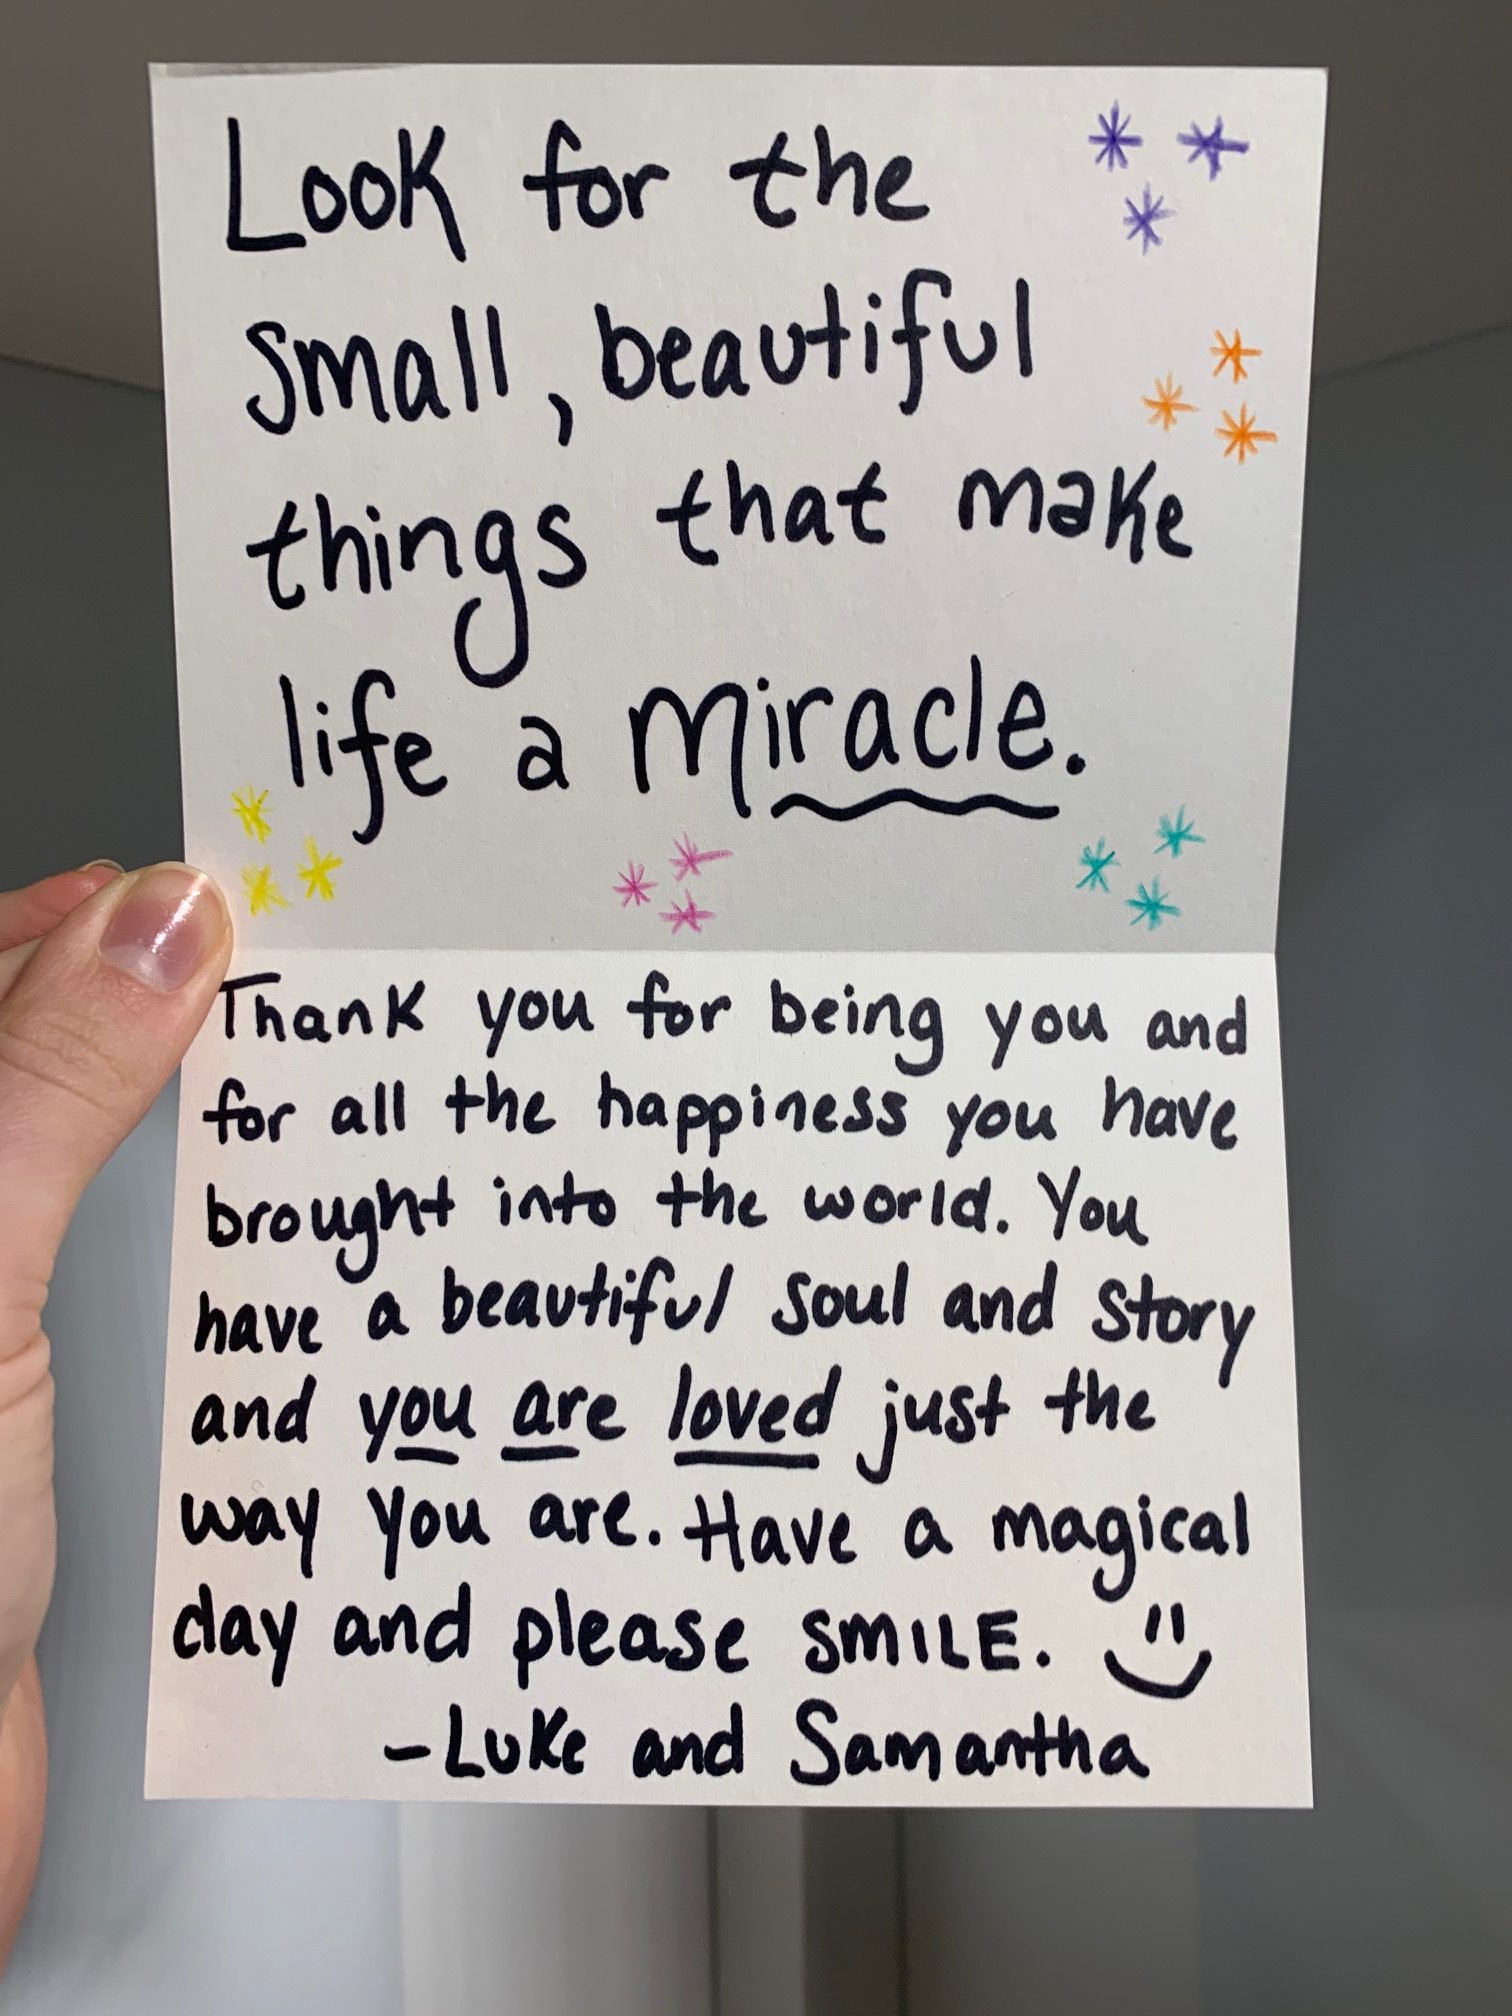 Look for the
small, beautiful
things that make
life a miracle.
Thank you for being you and
for all the happiness you have
brought into the world. You
have a beautiful soul and story
and you are loved just the
way you are. Have a magical
day and please SMILE.
-Luke and Samantha